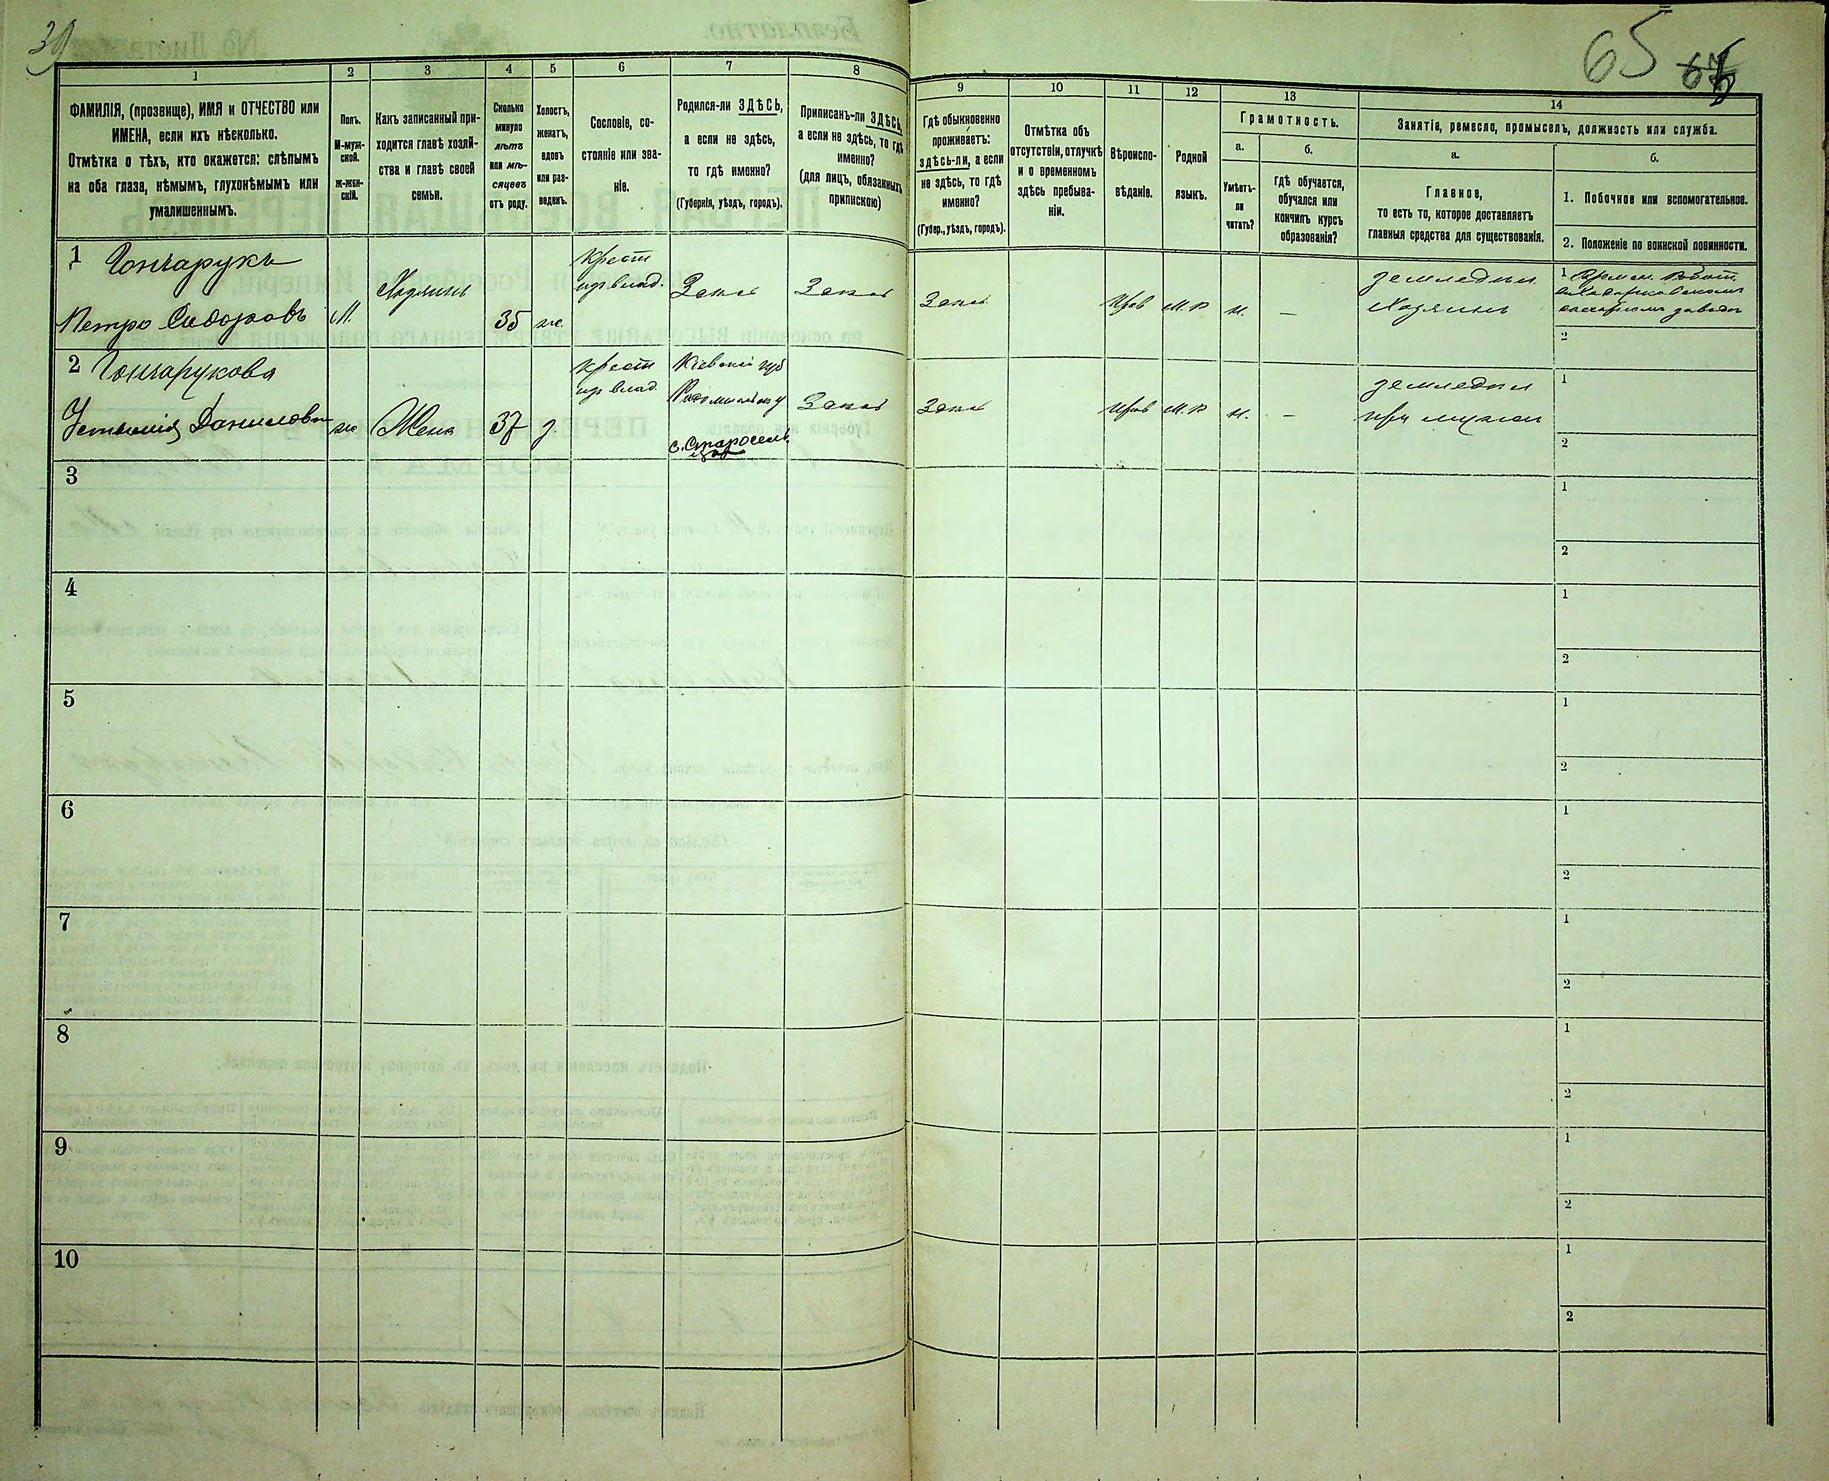 39
65
1
2
3
4
5
6
7
8
9
10
11
12
13
14
ФАМИЛІЯ, (прозвище), ИМЯ и ОТЧЕСТВО или
ИМЕНА, если ихъ нѣсколько.
Отмѣтка о тѣхъ, кто окажется: слѣпымъ
на оба глаза, нѣмымъ, глухонѣмымъ или
умалишеннымъ.
Полъ.
М-муж-
ской.
Ж-жен-
скій.
Какъ записанный при-
ходится главѣ хозяй-
ства и главѣ своей
семьи.
Сколько
минуло
лѣтъ
или мѣ-
сяцевъ
отъ роду.
Холостъ,
женатъ,
вдовъ
или раз-
веденъ.
Сословіе, со-
стояніе или зва-
ніе.
Родился-ли ЗДѢСЬ,
а если не здѣсь,
то гдѣ именно?
(Губернія, уѣздъ, городъ).
Приписанъ-ли ЗДѢСЬ,
а если не здѣсь, то гдѣ
именно?
(для лицъ, обязанныхъ
припискою)
Гдѣ обыкновенно
проживаетъ:
здѣсь-ли, а если
не здѣсь, то гдѣ
именно?
(Губер., уѣздъ, городъ).
Отмѣтка объ
отсутствіи, отлучкѣ
и о временномъ
здѣсь пребыва-
ніи.
Вѣроиспо-
вѣданіе.
Родной
языкъ.
Грамотность.
а.
б.
Умѣетъ-
ли
читать?
гдѣ обучается,
обучался или
кончилъ курсъ
образованія?
Занятіе, ремесло, промыселъ, должность или служба.
а.
б.
Главное,
то есть то, которое доставляетъ
главныя средства для существованія.
1. Побочное или вспомогательное.
2. Положеніе по воинской повинности.
1 Гончарукъ
Петро Сидоровъ
М.
Хозяинъ
35
же.
крест
из влад.
Здесь
Здесь
Здесь
Прав
М. Р
н.
—
земледѣл
Хозяинъ
1
2
2 Гончарукова
Устинія Данилова
же
Жена
37
з
крест
из влад
Кіевской губ
Радомысльск у
с. Старосель
Здесь
Здесь
Прав
М. Р
н.
—
земледѣл
при мужѣ
1
2
3
1
2
4
1
2
5
1
2
6
1
2
7
1
2
8
1
2
9
1
2
10
1
2